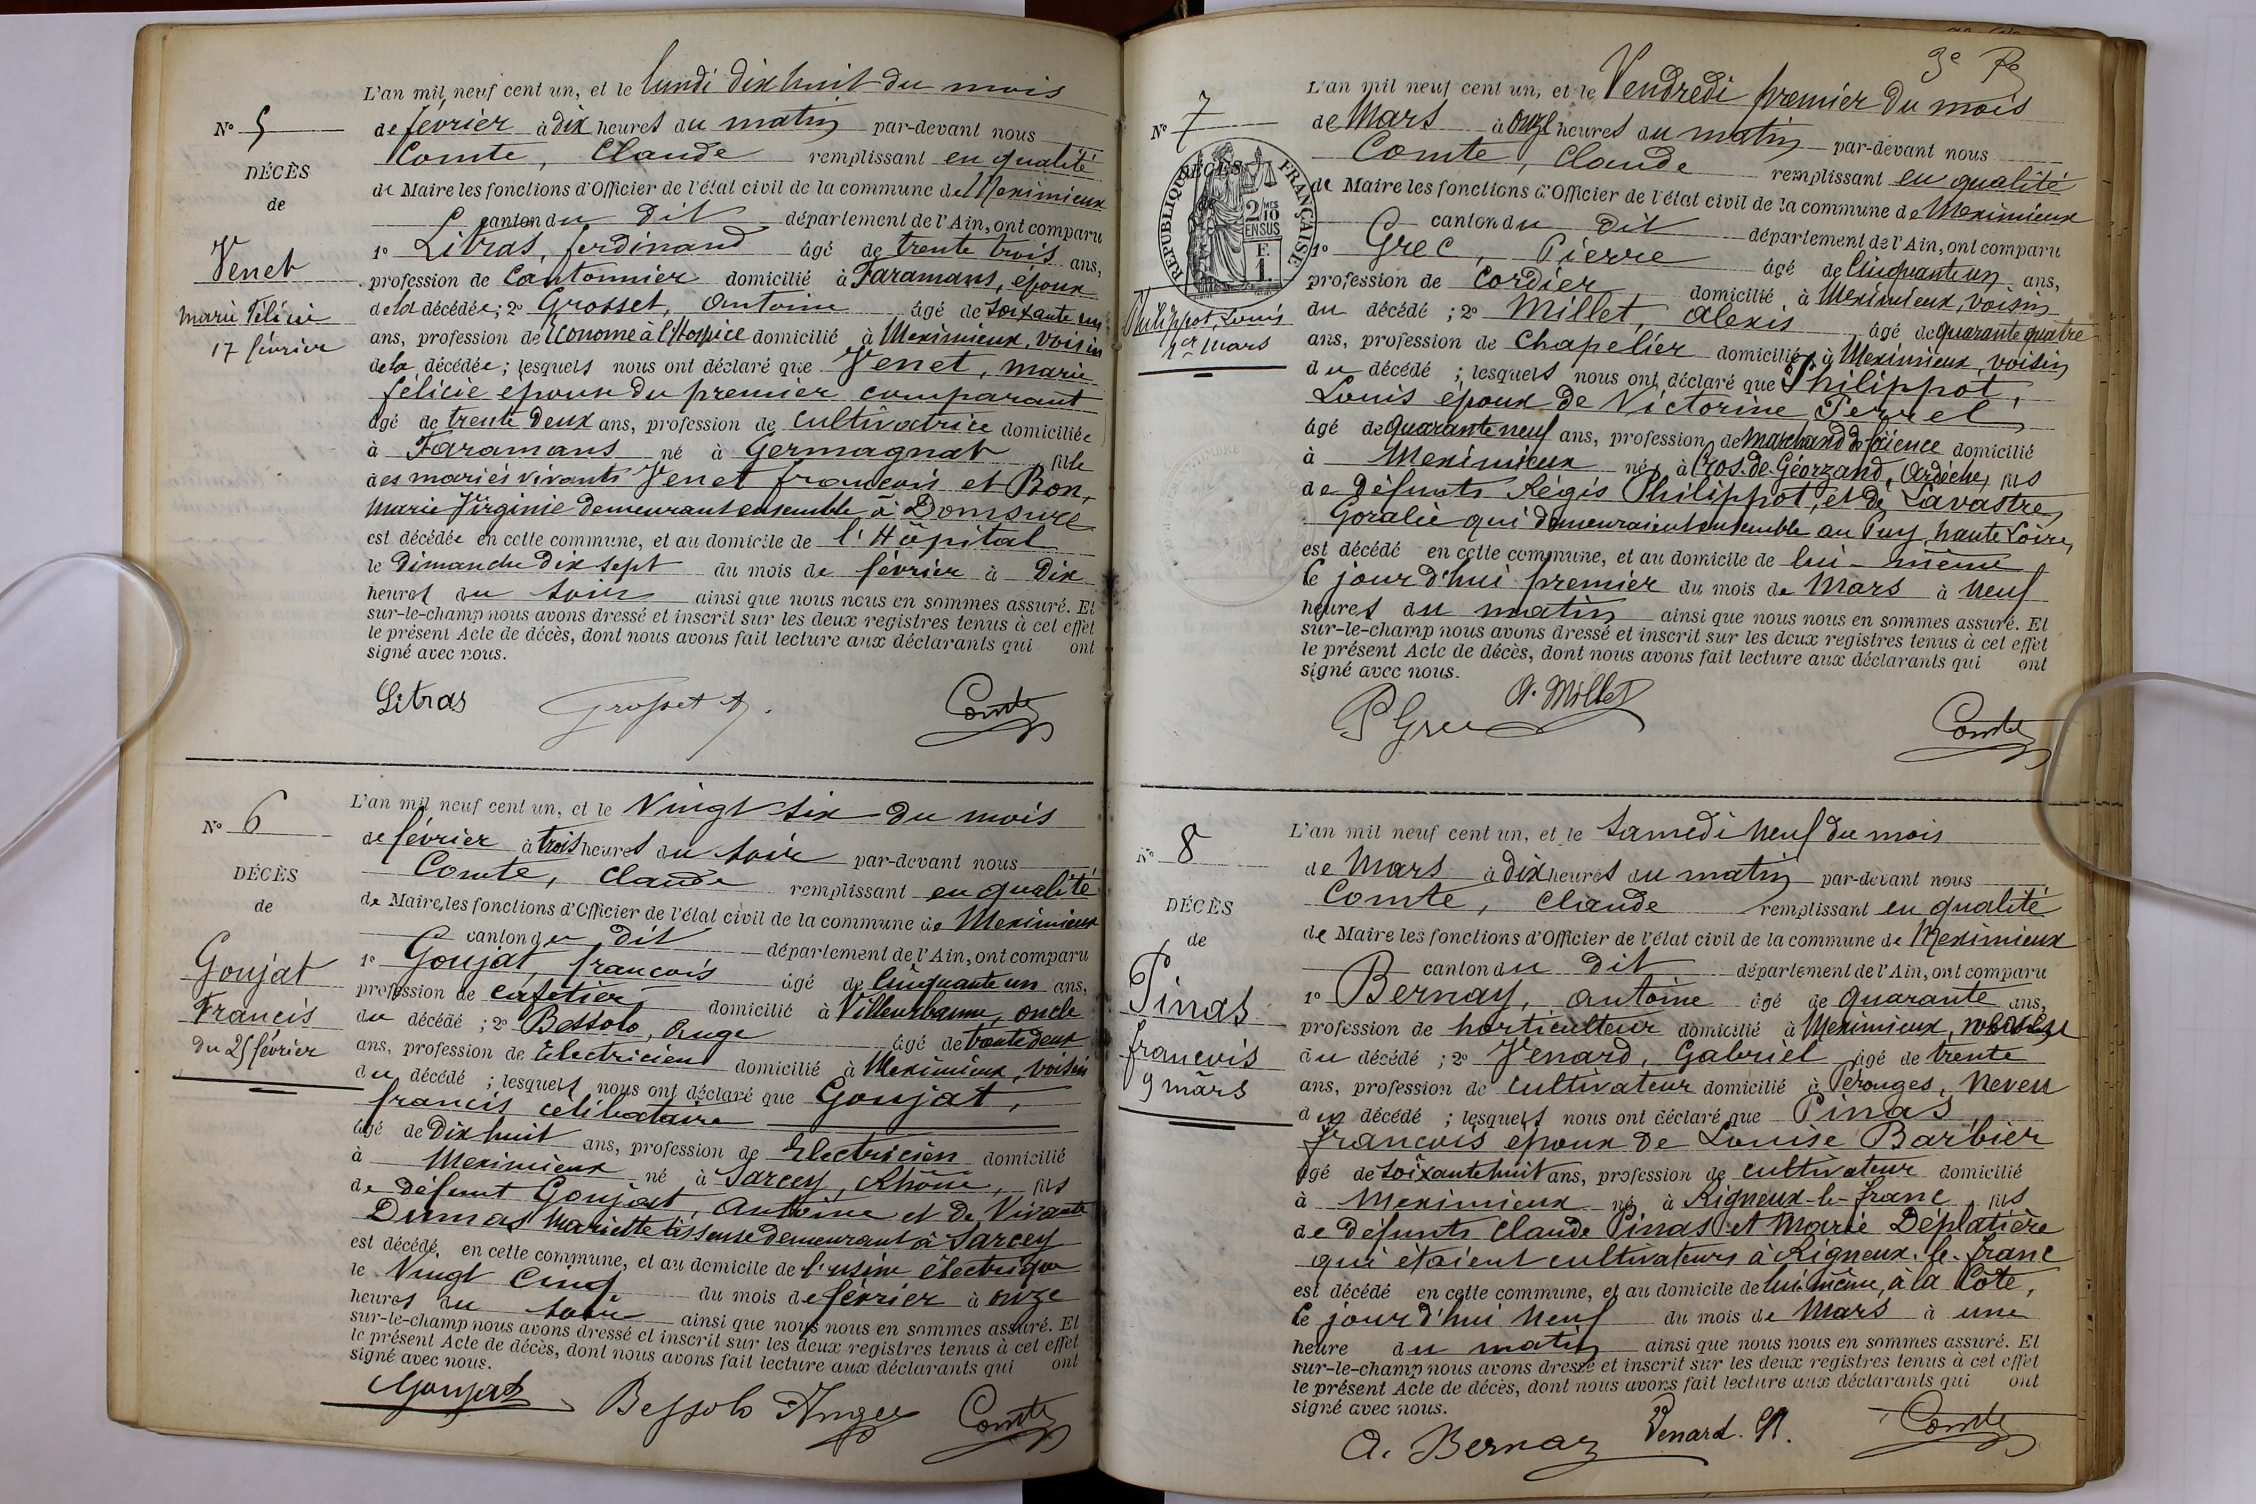 L'an mil neuf cent un, et le lundi dix huit du mois
N° 5
de février à dix heures du matin par-devant nous
Comte, Claude remplissant en qualité
DÉCÈS
de Maire les fonctions d'Officier de l'état civil de la commune de Meximieux
de
canton du dit département de l'Ain, ont comparu
1° Litras, ferdinand âgé de trente trois ans,
Venet
profession de Cantonnier domicilié à Faramans, époux
Marie Félicie
de la décédée; 2° Grosset, Antoine âgé de soixante un
17 février
ans, profession de Econome à l'Hospice domicilié à Meximieux, voisin
de la décédée; lesquels nous ont déclaré que Venet, Marie
félicie epoux du premier comparant
âgé de trente deux ans, profession de cultivatrice domiciliée
à Faramans né à Germagnat fille
des mariés vivants Venet francois et Bon,
Marie Virginie demeurant ensemble à Domsure
est décédée en cette commune, et au domicile de l'Hôpital
le Dimanche dix sept du mois de février à Dix
heures du soir ainsi que nous nous en sommes assuré. Et
sur-le-champ nous avons dressé et inscrit sur les deux registres tenus à cet effet
le présent Acte de décès, dont nous avons fait lecture aux déclarants qui ont
signé avec nous.
Litras Grosset A. Comte
L'an mil neuf cent un, et le Vingt six du mois
N° 6
de février à trois heures du soir par-devant nous
Comte, Claude remplissant en qualité
DÉCÈS
de Maire les fonctions d'Officier de l'état civil de la commune de Meximieux
de
canton du dit département de l'Ain, ont comparu
Goujat
1° Goujat, francois âgé de Cinquante un ans,
profession de cafetier domicilié à Villeurbanne, oncle
Francis
du décédé ; 2° Bessolo, Ange âgé de trente deux
du 25 février
ans, profession de Electricien domicilié à Meximieux, voisin
du décédé ; lesquels nous ont déclaré que Goujat,
francis célibataire
âgé de Dix huit ans, profession de Electricien domicilié
à Meximieux né à Sarcey, Rhône, fils
de défunt Goujat, Antoine et de Vivante
Dumas Mariette tisseuse demeurant à Sarcey
est décédé, en cette commune, et au domicile de l'usine électrique
le Vingt Cinq du mois de février à onze
heures du soir ainsi que nous nous en sommes assuré. Et
sur-le-champ nous avons dressé et inscrit sur les deux registres tenus à cet effet
le présent Acte de décès, dont nous avons fait lecture aux déclarants qui ont
signé avec nous.
Goujat Bessolo Ange Comte
3e
L'an mil neuf cent un, et le Vendredi premier du mois
N° 7
de Mars à onze heures du matin par-devant nous
Comte, Claude remplissant en qualité
DÉCÈS
RÉPUBLIQUE FRANÇAISE
2/10 MES
EN SUS
F.
1
de Maire les fonctions d'Officier de l'état civil de la commune de Meximieux
canton du dit département de l'Ain, ont comparu
1° Grec, Pierre âgé de Cinquante un ans,
profession de Cordier domicilié à Meximieux, voisin
Philippot, Louis
du décédé ; 2° Millet, Alexis âgé de quarante quatre
1er Mars
ans, profession de Chapelier domicilié à Meximieux, voisin
du décédé ; lesquels nous ont déclaré que Philippot,
Louis époux de Victorine Perrel,
âgé de quarante neuf ans, profession de Marchand de faïence domicilié
à Meximieux né à Cros-de-Géorzand, Ardèche, fils
de défunts Régis Philippot, et de Lavastre,
Goralie qui demeuraient ensemble au Puy, haute Loire,
est décédé en cette commune, et au domicile de lui-même
le jour d'hui premier du mois de Mars à Neuf
heures du matin ainsi que nous nous en sommes assuré. Et
sur-le-champ nous avons dressé et inscrit sur les deux registres tenus à cet effet
le présent Acte de décès, dont nous avons fait lecture aux déclarants qui ont
signé avec nous.
P Grec A. Millet Comte
L'an mil neuf cent un, et le Samedi Neuf du mois
N° 8
de Mars à dix heures du matin par-devant nous
Comte, Claude remplissant en qualité
DÉCÈS
de Maire les fonctions d'Officier de l'état civil de la commune de Meximieux
de
canton du dit département de l'Ain, ont comparu
Pinas
1° Bernay, Antoine âgé de quarante ans,
profession de horticulteur domicilié à Meximieux,
francois
du décédé ; 2° Venard, Gabriel âgé de trente
9 mars
ans, profession de cultivateur domicilié à Pérouges, Neveu
du décédé ; lesquels nous ont déclaré que Pinas
francois époux de Louise Barbier
âgé de Soixante huit ans, profession de cultivateur domicilié
à Meximieux né à Rigneux-le-franc fils
de défunts Claude Pinas et Marie Déplatière
qui étaient cultivateurs à Rigneux-le-franc
est décédé en cette commune, et au domicile de lui même, à la Côte,
le jour d'hui Neuf du mois de Mars à une
heure du matin ainsi que nous nous en sommes assuré. Et
sur-le-champ nous avons dressé et inscrit sur les deux registres tenus à cet effet
le présent Acte de décès, dont nous avons fait lecture aux déclarants qui ont
signé avec nous.
A. Bernaz Venard. G. Comte